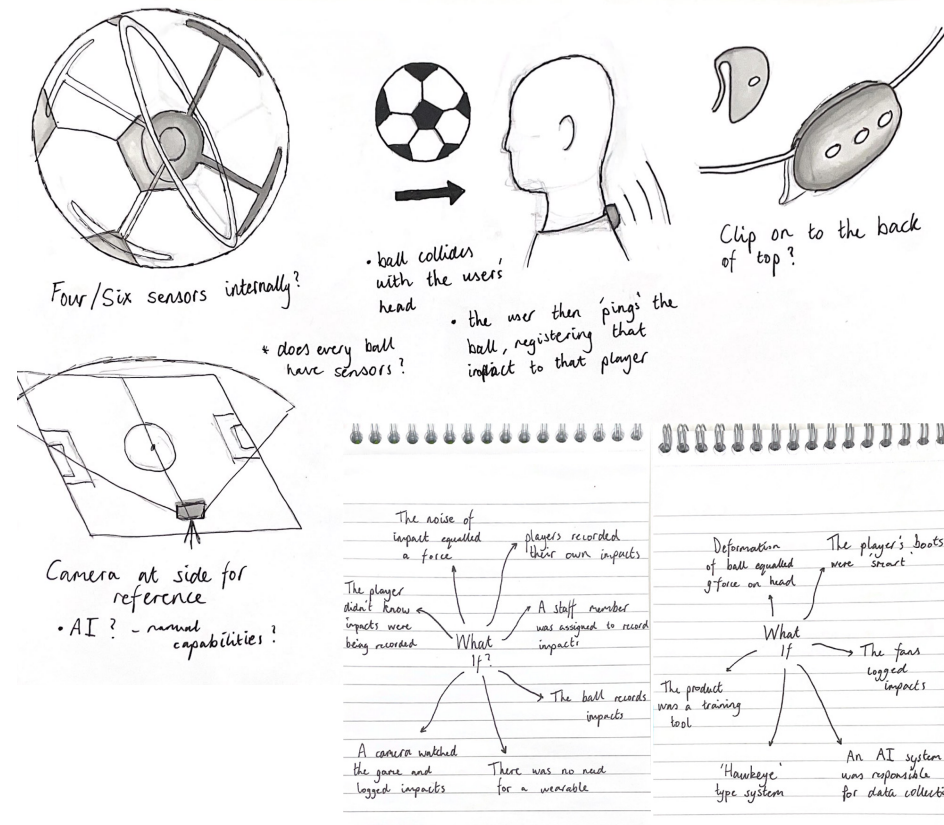 Four/Six sensors internally?
• ball collides
with the users'
head
• the user then 'pings' the
ball, registering that
impact to that player
Clip on to the back
of top?
* does every ball
have sensors?
Camera at side for
reference
• AI? - manual
capabilities?
The noise of
impact equalled
a force
players recorded
their own impacts
The player
didn't know
impacts were
being recorded
A staff member
was assigned to record
impacts
What
If?
The ball records
impacts
A camera watched
the game and
logged impacts
There was no need
for a wearable
Deformation
of ball equalled
gforce on head
The player's boots
were 'smart'
What
If
The fans
logged
impacts
The product
was a training
tool
'Hawkeye'
type system
An AI system
was responsible
for data